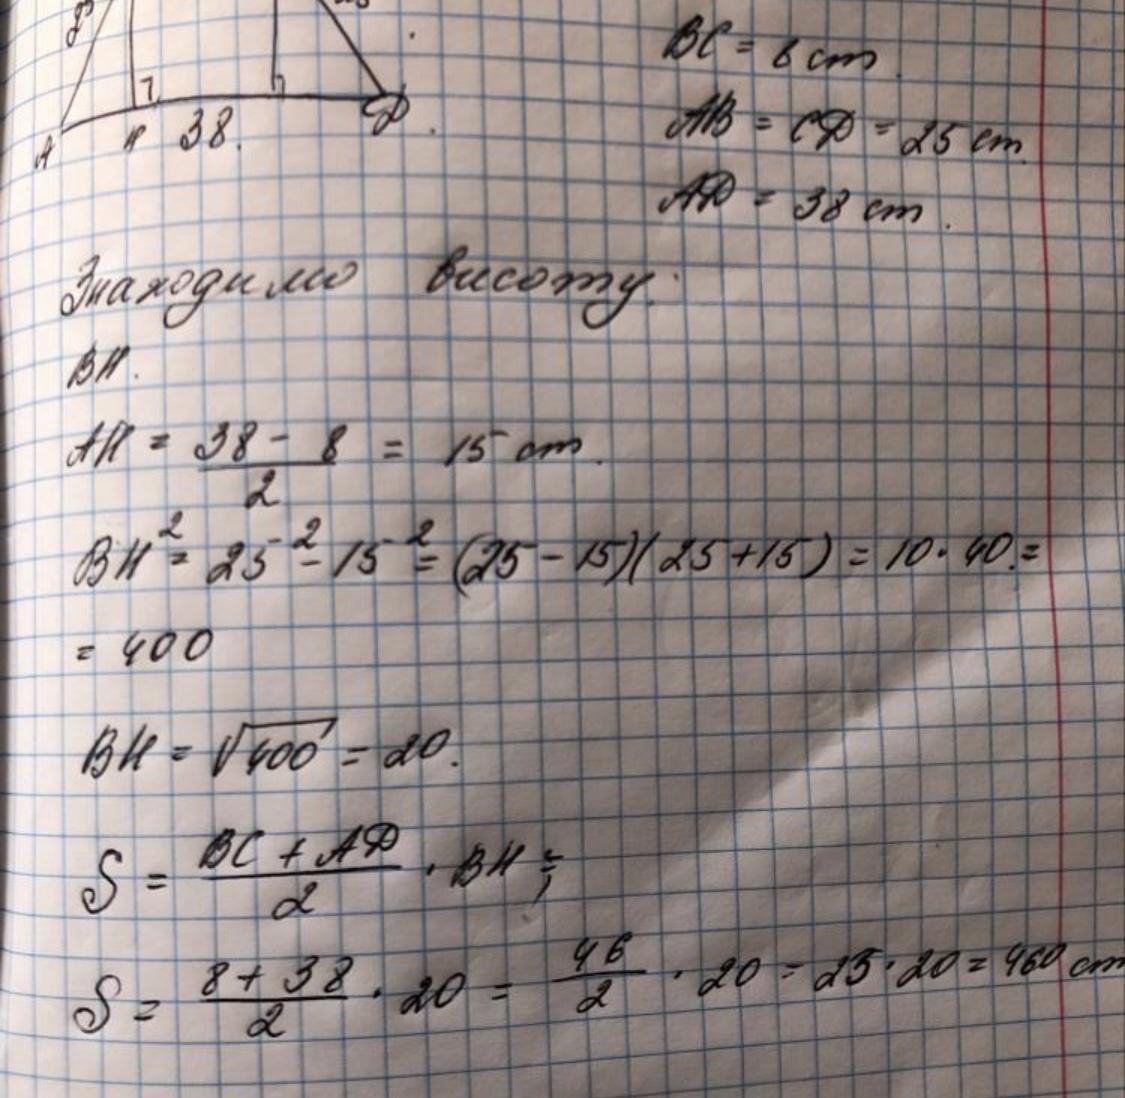 BC = 8 cm.
AB = CD = 25 cm.
AD = 38 cm.
A H 38. D
Знаходимо висоту:
BH.
AH = \frac{38 - 8}{2} = 15 cm.
BH² = 25² - 15² = (25 - 15)(25 + 15) = 10 · 40 =
= 400
BH = √400 = 20.
S = \frac{BC + AD}{2} · BH;
S = \frac{8 + 38}{2} · 20 = \frac{46}{2} · 20 = 23 · 20 = 460 cm